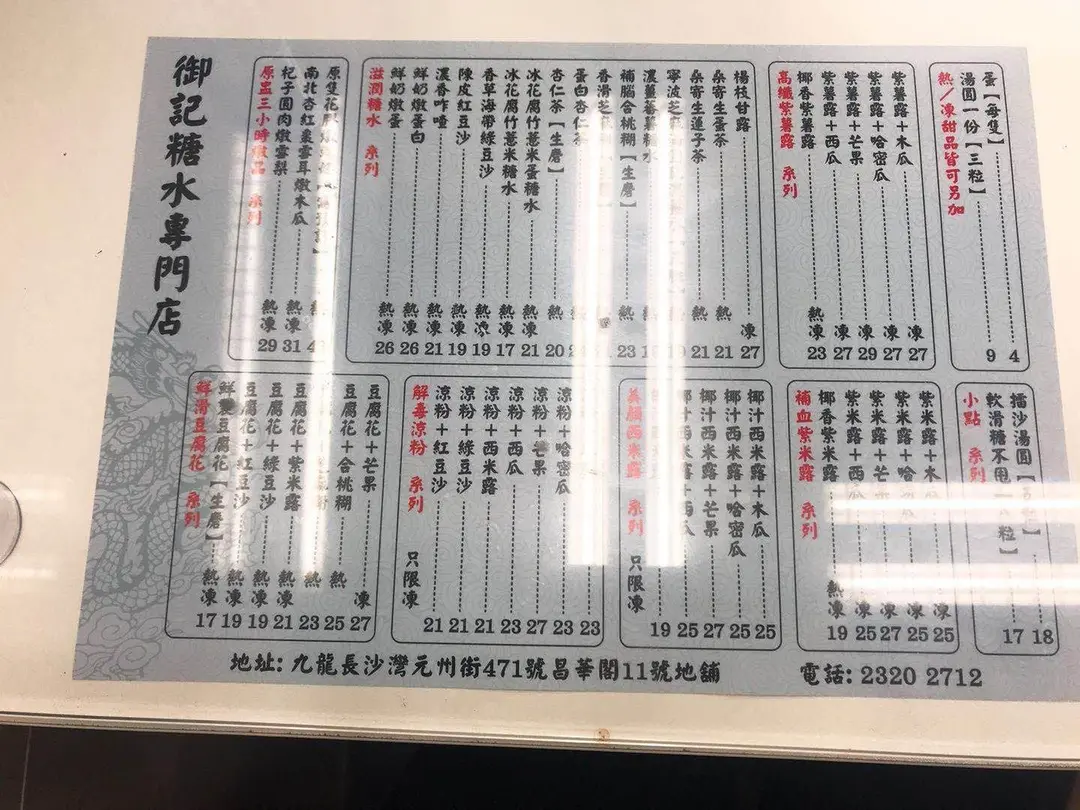 御記糖水專門店
原盅三小時燉品 系列
杞子圓肉燉雪梨 熱凍 29
南北杏紅棗雪耳燉木瓜 熱凍 31
原隻花 熱
滋潤糖水 系列
鮮奶燉蛋 熱凍 26
鮮奶燉蛋白 熱凍 26
濃香咋喳 熱凍 21
陳皮紅豆沙 熱凍 19
香草海帶綠豆沙 熱凍 19
冰花腐竹薏米糖水 熱凍 17
冰花腐竹薏米蛋糖水 熱凍 21
杏仁茶【生磨】 熱凍 20
蛋白杏仁茶 熱
香滑芝
補腦合桃糊【生磨】 熱 23
濃薑蕃薯糖水
寧波芝 19
桑寄生蓮子茶 熱 21
桑寄生蛋茶 熱 21
楊枝甘露 凍 27
高纖紫薯露 系列
椰香紫薯露 熱凍 23
紫薯露+西瓜 凍 27
紫薯露+芒果 凍 29
紫薯露+哈密瓜 凍 27
紫薯露+木瓜 凍 27
熱/凍甜品皆可另加
湯圓一份【三粒】 9
蛋【每隻】 4
鮮滑豆腐花 系列
鮮雙豆腐花【生磨】 熱凍 17
豆腐花+紅豆沙 熱凍 19
豆腐花+綠豆沙 熱凍 19
豆腐花+紫米露 熱凍 21
熱 23
豆腐花+合桃糊 熱 25
豆腐花+芒果 凍 27
解毒涼粉 系列 只限凍
涼粉+紅豆沙 21
涼粉+綠豆沙 21
涼粉+西米露 21
涼粉+西瓜 23
涼粉+芒果 27
涼粉+哈密瓜 23
23
美顏西米露 系列 只限凍
19
椰汁西米露+西瓜 25
椰汁西米露+芒果 27
椰汁西米露+哈密瓜 25
椰汁西米露+木瓜 25
補血紫米露 系列
椰香紫米露 熱凍 19
紫米露+西瓜 凍 25
紫米露+芒 凍 27
紫米露+哈 凍 25
紫米露+木 凍 25
小點 系列
軟滑糖不甩 粒】 17
擂沙湯圓 18
地址: 九龍長沙灣元州街471號昌華閣11號地舖
電話: 2320 2712